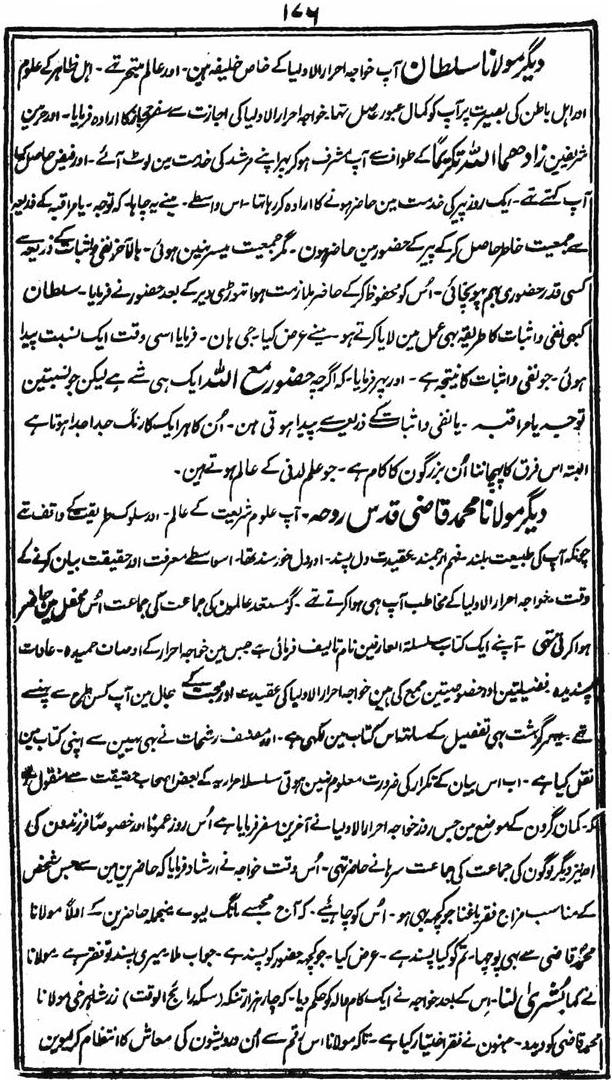 ۱۷۶
دیگر مولانا سلطان آپ خواجہ احرار الاولیا کے خاص خلیفہ ہین ۔ اور عالم متبحر تھے ۔ اہل ظاہر کے علوم
اور اہل باطن کی بصیرت پر آپ کو کمال عبور حاصل تھا۔ خواجہ احرار الاولیا کی اجازت سے سفر حجاز کا ارادہ فرمایا ۔ اور حرمین
شریفین زادھما اللہ تکریمًا کے طواف سے آپ مشرف ہو کر پھر اپنے مرشد کی خدمت مین لوٹ آئے ۔ اور فیض حاصل کیا
آپ کہتے تھے ۔ ایک روز پیر کی خدمت مین حاضر ہونے کا ارادہ کر رہا تھا ۔ اس واسطے ۔ مینے یہ چاہا کہ توجہ ۔ یا مراقبہ کے ذریعہ
سے جمعیت خاطر حاصل کر کے پیر کے حضور مین حاضر ہون ۔ مگر جمعیت میسر نہین ہوئی ۔ بالآخر نفی و اثبات کے ذریعہ سے
کسی قدر حضوری بہم پہونچائی ۔ اُس کو محفوظ رکھ کر کے حاضر ملازمت ہوا تھوڑی دیر کے بعد حضور نے فرمایا ۔ سلطان
کبھی نفی و اثبات کا طریقہ بھی عمل مین لایا کرتے ہو ۔ مینے عرض کیا ۔ جی ہان ۔ فرمایا اسی وقت ایک نسبت پیدا
ہوئی ۔ جو نفی و اثبات کا نتیجہ ہے ۔ اور پھر فرمایا ۔ کہ اگرچہ حضور مع اللہ ایک ہی شے ہے لیکن جو نسبتین
توجہ یا مراقبہ ۔ یا نفی و اثبات کے ذریعہ سے پیدا ہوتی ہین ۔ اُن کا ہر ایک کا رنگ جدا جدا ہوتا ہے
البتہ اس فرق کا پہچاننا اُن بزرگون کا کام ہے ۔ جو علم لدنی کے عالم ہوتے ہین ۔
دیگر مولانا محمد قاضی قدس روحہ ۔ آپ علوم شریعت کے عالم ۔ اور سلوک طریقت کے واقف تھے
چونکہ آپ کی طبیعت بلند ۔ فہم ارجمند ۔ عقیدت دل پسند ۔ اور دل خورسند تھا ۔ اسواسطے معرفت اور حقیقت بیان کرنے کے
وقت ۔ خواجہ احرار الاولیا کے مخاطب آپ ہی ہوا کرتے تھے ۔ گو مستعد عالمون کی جماعت کی جماعت اُس محفل مین حاضر
ہوا کرتی تھی ۔ آپنے ایک کتاب سلسلۃ العارفین نام تالیف فرمائی ہے جس مین خواجہ احرار کے اوصاف حمیدہ ۔ عادات
پسندیدہ فضیلتین اور خصوصیتین جمع کی ہین خواجہ احرار الاولیا کی عقیدت اور محبت کے جال مین آپ کس طرح سے پھنسے
تھے ۔ یہ سرگذشت بھی تفصیل کے ساتھ اس کتاب مین لکھی ہے ۔ اور مصنف رشحات نے بھی یہین سے اپنی کتاب مین
نقل کیا ہے ۔ اب اس بیان کے تکرار کی ضرورت معلوم نہین ہوتی سلسلہ احراریہ کے بعض اصحاب حقیقت سے منقول ہے
کہ ۔ کمان گرون کے موضع مین جس روز خواجہ احرار الاولیا نے آخرین سفر فرمایا ہے اُس روز عمومًا اور خصوصًا فرزندون کی
اور نیز دیگر لوگون کی جماعت کی جماعت سرہانے حاضر تھی ۔ اُس وقت خواجہ نے ارشاد فرمایا کہ حاضرین مین سے جس شخص
کے مناسب مزاج فقر یا غنا جو کچھ بھی ہو ۔ اُس کو چاہئے ۔ کہ آج مجھسے مانگ لیوے منجملہ حاضرین کے اولًا مولانا
محمد قاضی سے بھی پوچھا ۔ تم کو کیا پسند ہے ۔ عرض کیا ۔ جو کچھ حضور کو پسند ہے ۔ جواب ملا میری پسند تو فقر ہے ۔ مولانا
نے کہا بُشریٰ لنا ۔ اس کے بعد خواجہ نے ایک کام والہ کو حکم دیا ۔ کہ چار ہزار تنکہ (سکہ رائج الوقت) زر شاہرخی مولانا
محمد قاضی کو دیدو ۔ جنہون نے فقر اختیار کیا ہے ۔ تاکہ مولانا اس رقم سے اُن درویشون کی معاش کا انتظام کر لیوین